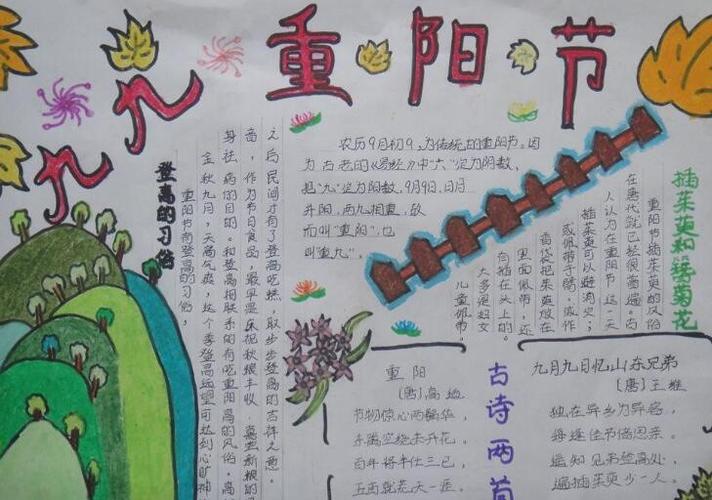 九九重阳节
农历9月初9,为传统的重阳节。因
为古老的《易经》中"六"定为阴数,
把"九"定为阳数,9月9日,日月
并阳,两九相重,故
而叫"重阳",也
叫"重九"。
登高的习俗
重阳节有登高的习俗,
金秋九月,天高气爽,这个季登高远望可达到心旷神
身祛病的目的。和登高相联系的有吃重阳高的风俗。高
之后民间才有了登高吃糕,
插茱萸和簪菊花
重阳节插茱萸的风俗
在唐代就已经很普遍。古
人认为在重阳节这一天
插茱萸可以避消灾;
或佩带于臂,或作
香袋把茱萸放在
里面佩带,还
有插在头上的。
大多是妇女
儿童佩带。
古诗两首
重阳
(唐)高适
节物惊心两鬓华,
东篱空绕未开花。
百年将半仕三已,
五亩就荒天一涯。
九月九日忆山东兄弟
(唐)王维
独在异乡为异客,
每逢佳节倍思亲。
遥知兄弟登高处,
遍插茱萸少一人。